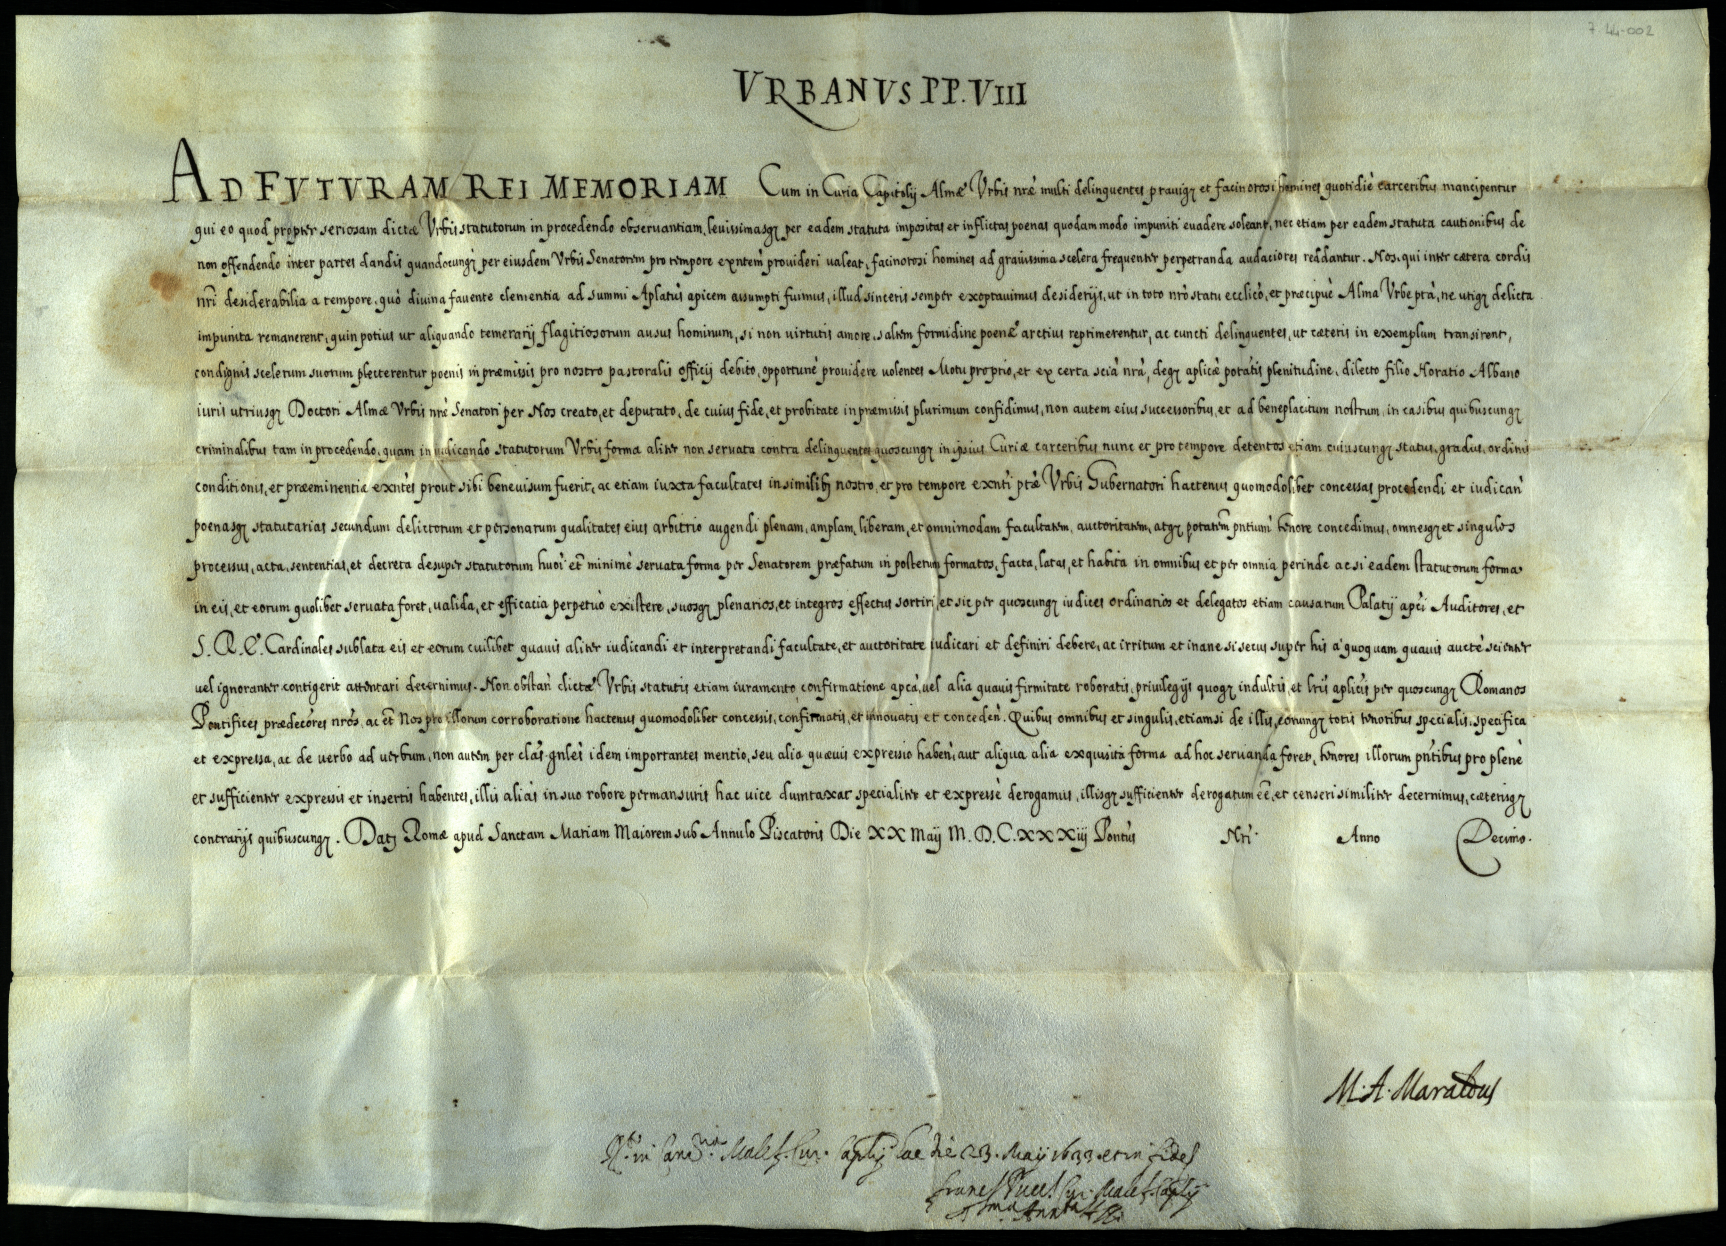 7 44-002
VRBANVS PP. VIII
AD FVTVRAM REI MEMORIAM Cum in Curia Capitolij Almæ Vrbis nræ multi delinquentes prauiq; et facinorosi homines quotidiè carceribus mancipentur
qui eo quod propter seriosam dictæ Vrbis statutorum in procedendo obseruantiam, leuissimasq; per eadem statuta impositas et inflictas poenas quodammodo impuniti euadere soleant, nec etiam per eadem statuta cautionibus de
non offendendo inter partes dandis quandocunq; per eiusdem Vrbis Senatorem pro tempore exntem prouideri ualeat, facinorosi homines ad grauissima scelera frequenter perpetranda audaciores reddantur. Nos, qui inter cætera cordis
nri desiderabilia a tempore, quò diuina fauente clementia ad summi Aplatus apicem assumpti fuimus, illud sinceris semper exoptauimus desiderijs, ut in toto nrò statu ecclicò, et præcipuè Alma Vrbe ptà, ne utiq; delicta
impunita remanerent, quin potius ut aliquando temerarij flagitiosorum ausus hominum, si non uirtutis amore, saltem formidine poenæ arctius reprimerentur, ac cuncti delinquentes, ut cæteris in exemplum transirent,
condignis scelerum suorum plecterentur poenis in præmissis pro nostro pastoralis officij debito, opportunè prouidere uolentes Motu proprio, et ex certa scià nrà, deq; aplicæ potatis plenitudine, dilecto filio Horatio Albano
iuris utriusq; Doctori Almæ Vrbis nræ Senatori per Nos creato, et deputato, de cuius fide, et probitate in præmissis plurimum confidimus, non autem eius successoribus, et ad beneplacitum nostrum, in casibus quibuscunq;
criminalibus tam in procedendo, quam in iudicando statutorum Vrbis forma aliter non seruata contra delinquentes quoscunq; in ipsius Curiæ carceribus nunc et pro tempore detentos etiam cuiuscunq; status, gradus, ordinis
conditionis, et præeminentiæ exntes prout sibi beneuisum fuerit, ac etiam iuxta facultates in similib; nostro, et pro tempore exnti ptæ Vrbis Gubernatori hactenus quomodolibet concessas procedendi et iudican
poenasq; statutarias secundum delictorum et personarum qualitates eius arbitrio augendi plenam, amplam, liberam, et omnimodam facultatem, auctoritatem, atq; potatem pntium tenore concedimus, omnesq; et singulos
processus, acta, sententias, et decreta desuper statutorum huoi et minimè seruata forma per Senatorem præfatum in posterum formatos, facta, latas, et habita in omnibus et per omnia perinde ac si eadem statutorum forma
in eis, et eorum quolibet seruata foret, ualida, et efficacia perpetuò existere, suosq; plenarios, et integros effectus sortiri, et sic per quoscunq; iudices ordinarios et delegatos etiam causarum Palatij apci Auditores, et
S. R. E. Cardinales sublata eis et eorum cuilibet quauis aliter iudicandi et interpretandi facultate, et auctoritate iudicari et definiri debere, ac irritum et inane si secus super his à quoquam quauis auctè scienter
uel ignoranter contigerit attentari decernimus. Non obstan dictæ Vrbis statutis etiam iuramento confirmatione apcà, uel alia quauis firmitate roboratis, priuilegijs quoq; indultis, et lris aplicis per quoscunq; Romanos
Pontifices prædecores nros, ac et Nos pro illorum corroboratione hactenus quomodolibet concessis, confirmatis, et innouatis et conceden. Quibus omnibus et singulis, etiamsi de illis, eorumq; totis tenoribus specialis, specifica
et expressa, ac de uerbo ad uerbum, non autem per clas gnles idem importantes mentio, seu alia quæuis expressio haben, aut aliqua alia exquisita forma ad hoc seruanda foret, tenores illorum pntibus pro plenè
et sufficienter expressis et insertis habentes, illis aliàs in suo robore permansuris hac uice dumtaxat specialiter et expressè derogamus, illisq; sufficienter derogatum eè, et censeri similiter decernimus, cæterisq;
contrarijs quibuscunq;. Dat; Romæ apud Sanctam Mariam Maiorem sub Annulo Piscatoris Die XX Maij M. D. C. XXXiij Pontus Nri Anno Decimo.
M. A. Maraldus
in Malef. Cur. Caplij hac die 23. Maij 1633. et in fides
Cur. Malef. Caplij